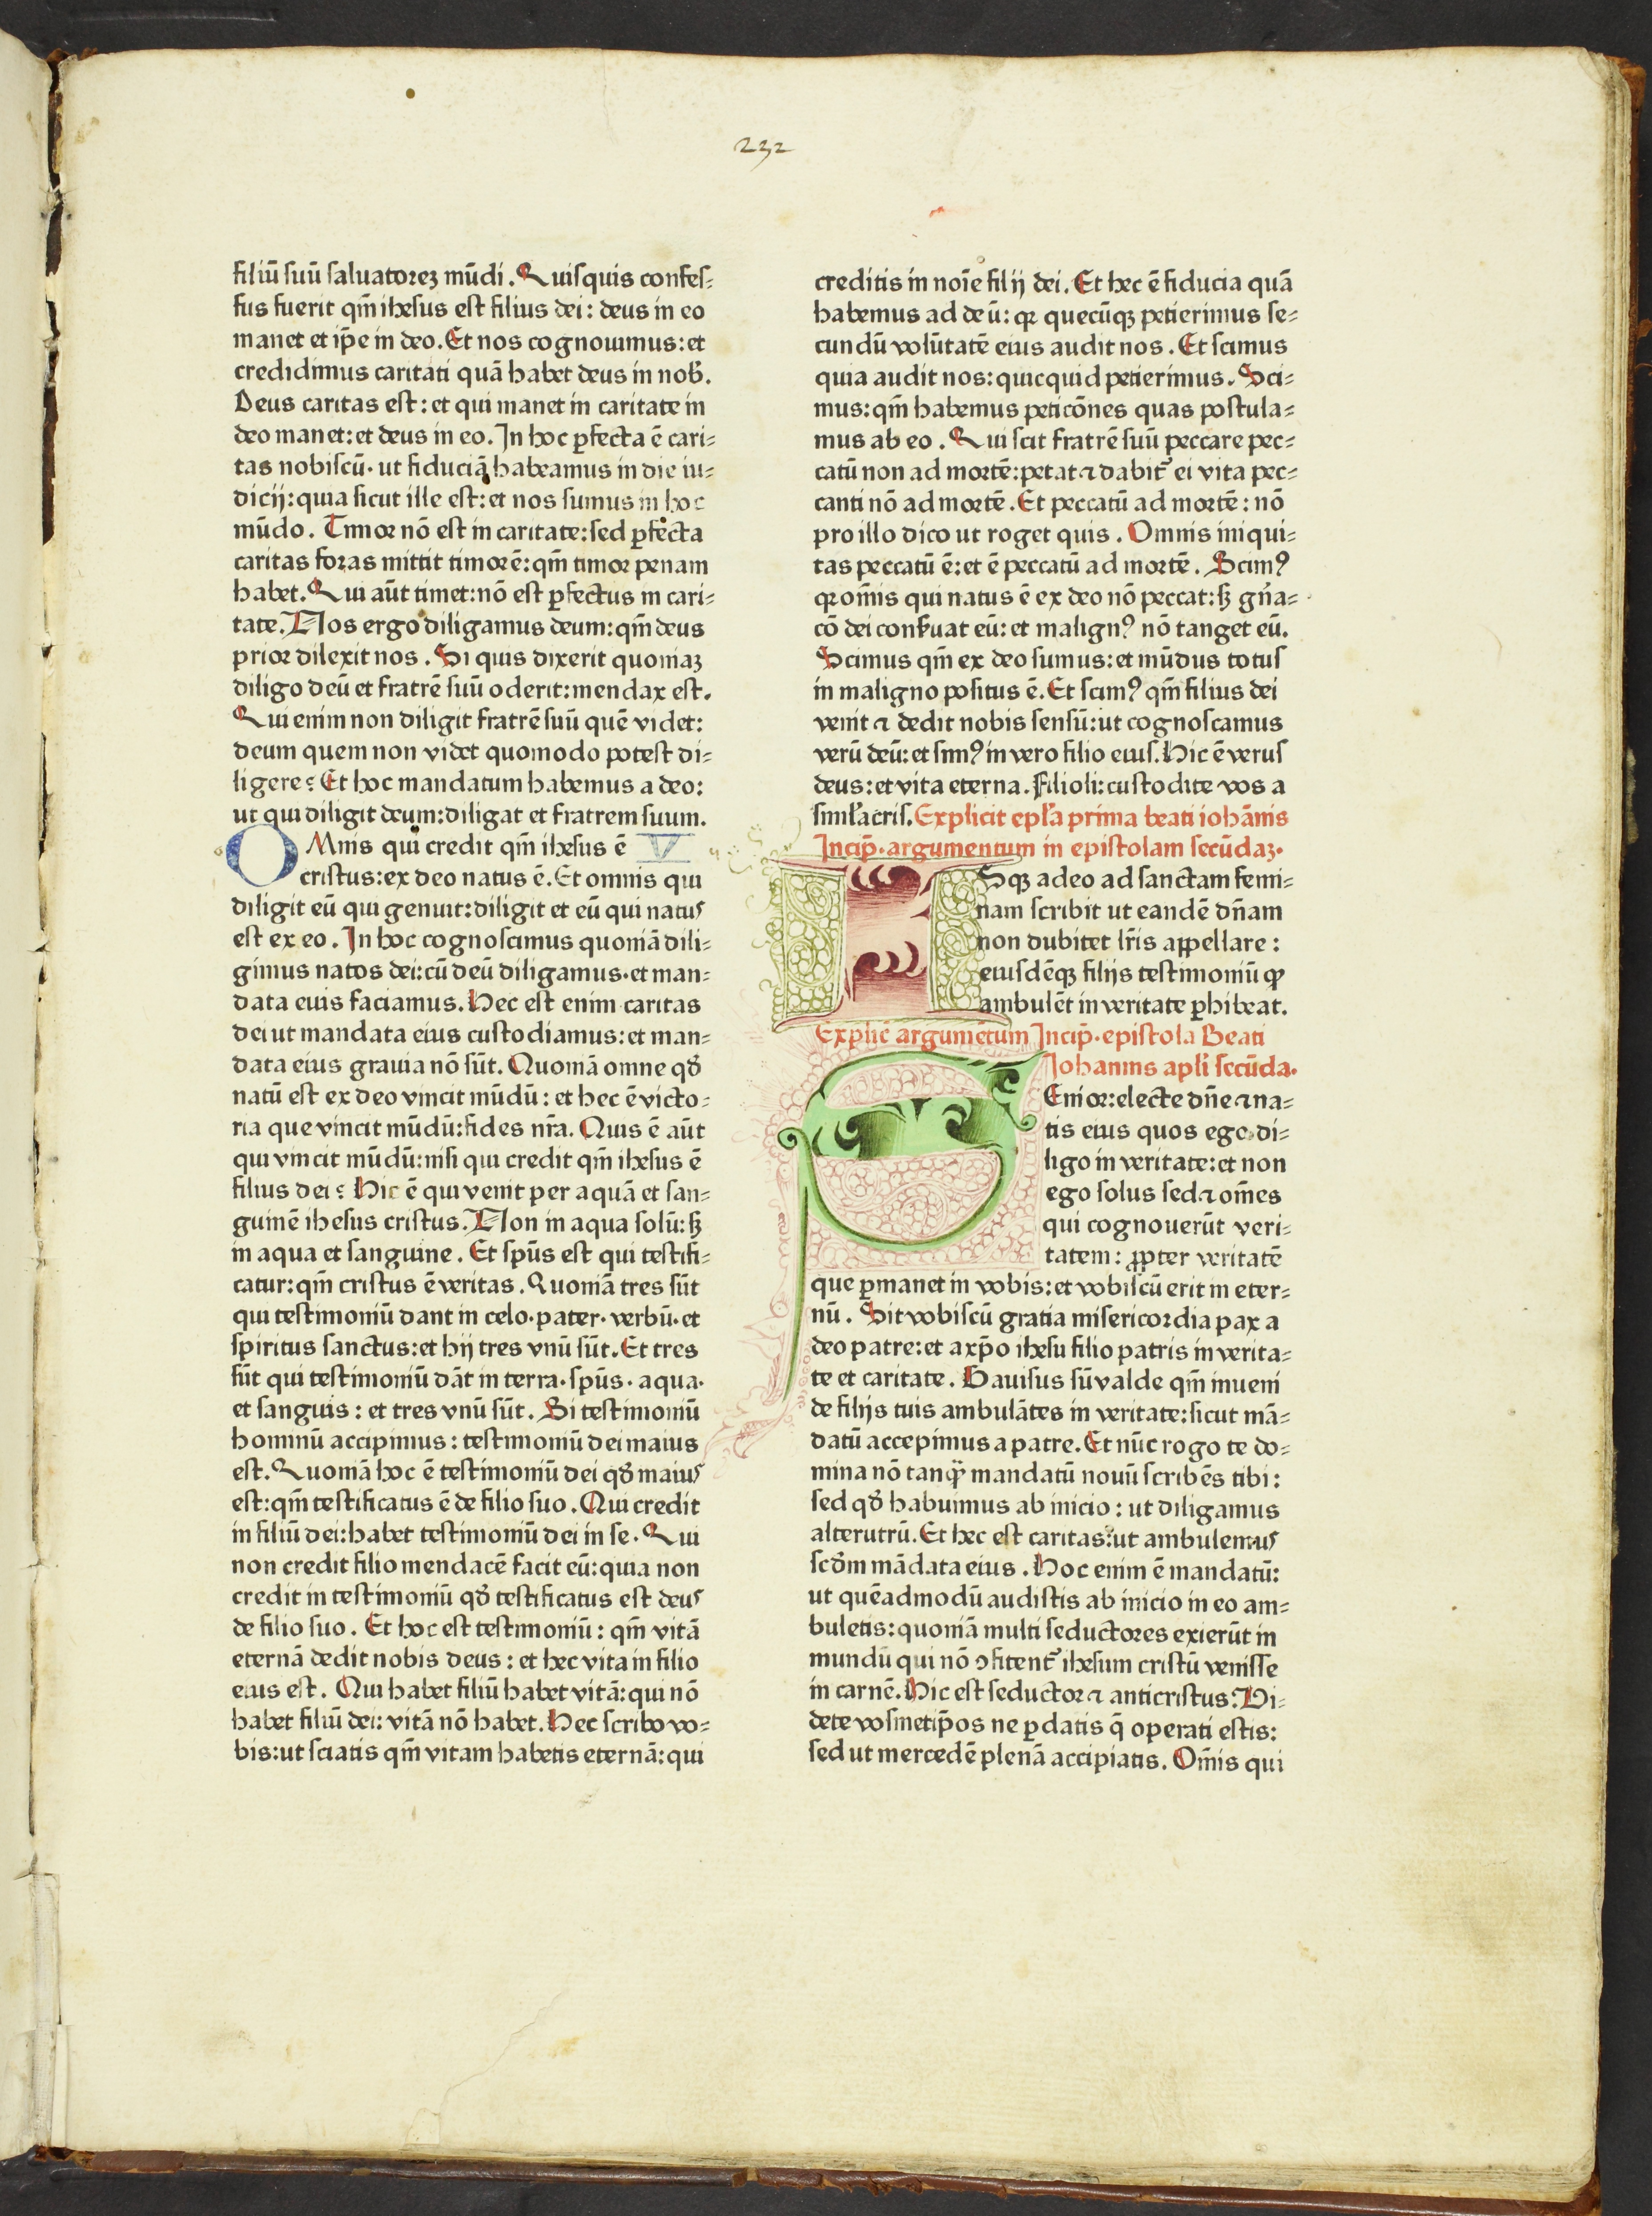 232
filiū suū saluatorez mūdi. Quisquis confes⸗
sus fuerit qm̄ ihesus est filius dei: deus in eo
manet et ip̄e in deo. Et nos cognouimus: et
credidimus caritati quā habet deus in nob̄.
Deus caritas est: et qui manet in caritate in
deo manet: et deus in eo. In hoc ꝑfecta ē cari⸗
tas nobiscū· ut fiduciā habeamus in die iu⸗
dicij: quia sicut ille est: et nos sumus in hoc
mūdo. Timor nō est in caritate: sed ꝑfecta
caritas foras mittit timorē: qm̄ timor penam
habet. Qui aūt timet: nō est ꝑfectus in cari⸗
tate. Nos ergo diligamus deum: qm̄ deus
prior dilexit nos. Si quis dixerit quoniaz
diligo deū et fratrē suū oderit: mendax est.
Qui enim non diligit fratrē suū quē videt:
deum quem non videt quomodo potest di⸗
ligere? Et hoc mandatum habemus a deo:
ut qui diligit deum: diligat et fratrem suum.
OMnis qui credit qm̄ ihesus ē V
cristus: ex deo natus ē. Et omnis qui
diligit eū qui genuit: diligit et eū qui natus
est ex eo. In hoc cognoscimus quoniā dili⸗
gimus natos dei: cū deū diligamus· et man⸗
data eius faciamus. Hec est enim caritas
dei ut mandata eius custodiamus: et man⸗
data eius grauia nō sūt. Quoniā omne qd̄
natū est ex deo vincit mūdū: et hec ē victo⸗
ria que vincit mūdū: fides nr̄a. Quis ē aūt
qui vincit mūdū: nisi qui credit qm̄ ihesus ē
filius dei? Hic ē qui venit per aquā et san⸗
guinē ihesus cristus. Non in aqua solū: sꝫ
in aqua et sanguine. Et sp̄us est qui testifi⸗
catur: qm̄ cristus ē veritas. Quoniā tres sūt
qui testimoniū dant in celo· pater· verbū· et
spiritus sanctus: et hij tres vnū sūt. Et tres
sūt qui testimoniū dāt in terra· sp̄us· aqua·
et sanguis: et tres vnū sūt. Si testimoniū
hominū accipimus: testimoniū dei maius
est. Quoniā hoc ē testimoniū dei qd̄ maius
est: qm̄ testificatus ē de filio suo. Qui credit
in filiū dei: habet testimoniū dei in se. Qui
non credit filio mendacē facit eū: quia non
credit in testimoniū qd̄ testificatus est deus
de filio suo. Et hoc est testimoniū: qm̄ vitā
eternā dedit nobis deus: et hec vita in filio
eius est. Qui habet filiū habet vitā: qui nō
habet filiū dei: vitā nō habet. Hec scribo vo⸗
bis: ut sciatis qm̄ vitam habetis eternā: qui
creditis in noīe filij dei. Et hec ē fiducia quā
habemus ad deū: qꝛ quecūqꝫ petierimus se⸗
cundū volūtatē eius audit nos. Et scimus
quia audit nos: quicquid petierimus. Sci⸗
mus: qm̄ habemus peticōnes quas postula⸗
mus ab eo. Qui scit fratrē suū peccare pec⸗
catū non ad mortē: petat ⁊ dabit᷑ ei vita pec⸗
canti nō ad mortē. Et peccatū ad mortē: nō
pro illo dico ut roget quis. Omnis iniqui⸗
tas peccatū ē: et ē peccatū ad mortē. Scimꝰ
qꝛ om̄is qui natus ē ex deo nō peccat: sꝫ gn̄a⸗
cō dei conẜuat eū: et malignꝰ nō tanget eū.
Scimus qm̄ ex deo sumus: et mūdus totus
in maligno positus ē. Et scimꝰ qm̄ filius dei
venit ⁊ dedit nobis sensū: ut cognoscamus
verū deū: et simꝰ in vero filio eius. Hic ē verus
deus: et vita eterna. Filioli: custodite vos a
siml̄acris. Explicit epl̄a prima beati iohānis
Incip̄· argumentum in epistolam secūdaz·
ISqꝫ adeo ad sanctam femi⸗
nam scribit ut eandē dn̄am
non dubitet lr̄is aꝑpellare:
eiusdēqꝫ filijs testimoniū ꝙ
ambulēt in veritate ꝑhibeat.
Explic̄ argumētum Incip̄· epistola Beati
Johannis apl̄i secūda·
SEnior: electe dn̄e ⁊ na⸗
tis eius quos ego di⸗
ligo in veritate: et non
ego solus sed ⁊ om̄es
qui cognouerūt veri⸗
tatem: ꝓpter veritatē
que ꝑmanet in vobis: et vobiscū erit in eter⸗
nū. Sit vobiscū gratia misericordia pax a
deo patre: et a xp̄o ihesu filio patris in verita⸗
te et caritate. Gauisus sū valde qm̄ inueni
de filijs tuis ambulātes in veritate: sicut mā⸗
datū accepimus a patre. Et nūc rogo te do⸗
mina nō tanꝙ̄ mandatū nouū scribēs tibi:
sed qd̄ habuimus ab inicio: ut diligamus
alterutrū. Et hec est caritas: ut ambulemus
scd̄m mādata eius. Hoc enim ē mandatū:
ut quēadmodū audistis ab inicio in eo am⸗
buletis: quoniā multi seductores exierūt in
mundū qui nō ꝯfitent᷑ ihesum cristū venisse
in carnē. Hic est seductor ⁊ anticristus. Vi⸗
dete vosmetip̄os ne ꝑdatis q̄ operati estis:
sed ut mercedē plenā accipiatis. Om̄is qui